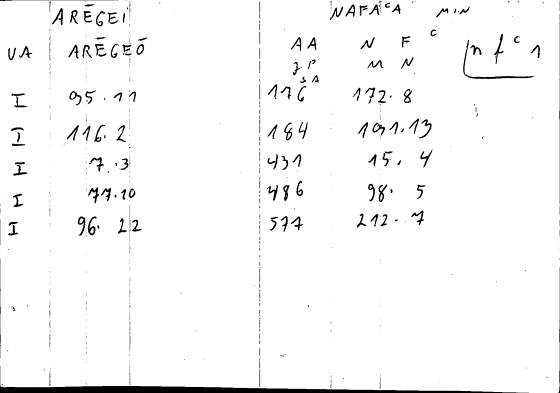 ARĒGEI NAFAᶜA MIN
UA ARĒGEŌ AA N F ᶜ n f ᶜ 1
J.P M N
SA
I 95.11 176 172.8
I 116.2 184 191.13
I 7.3 431 15.4
I 77.10 486 98.5
I 96.22 577 212.7